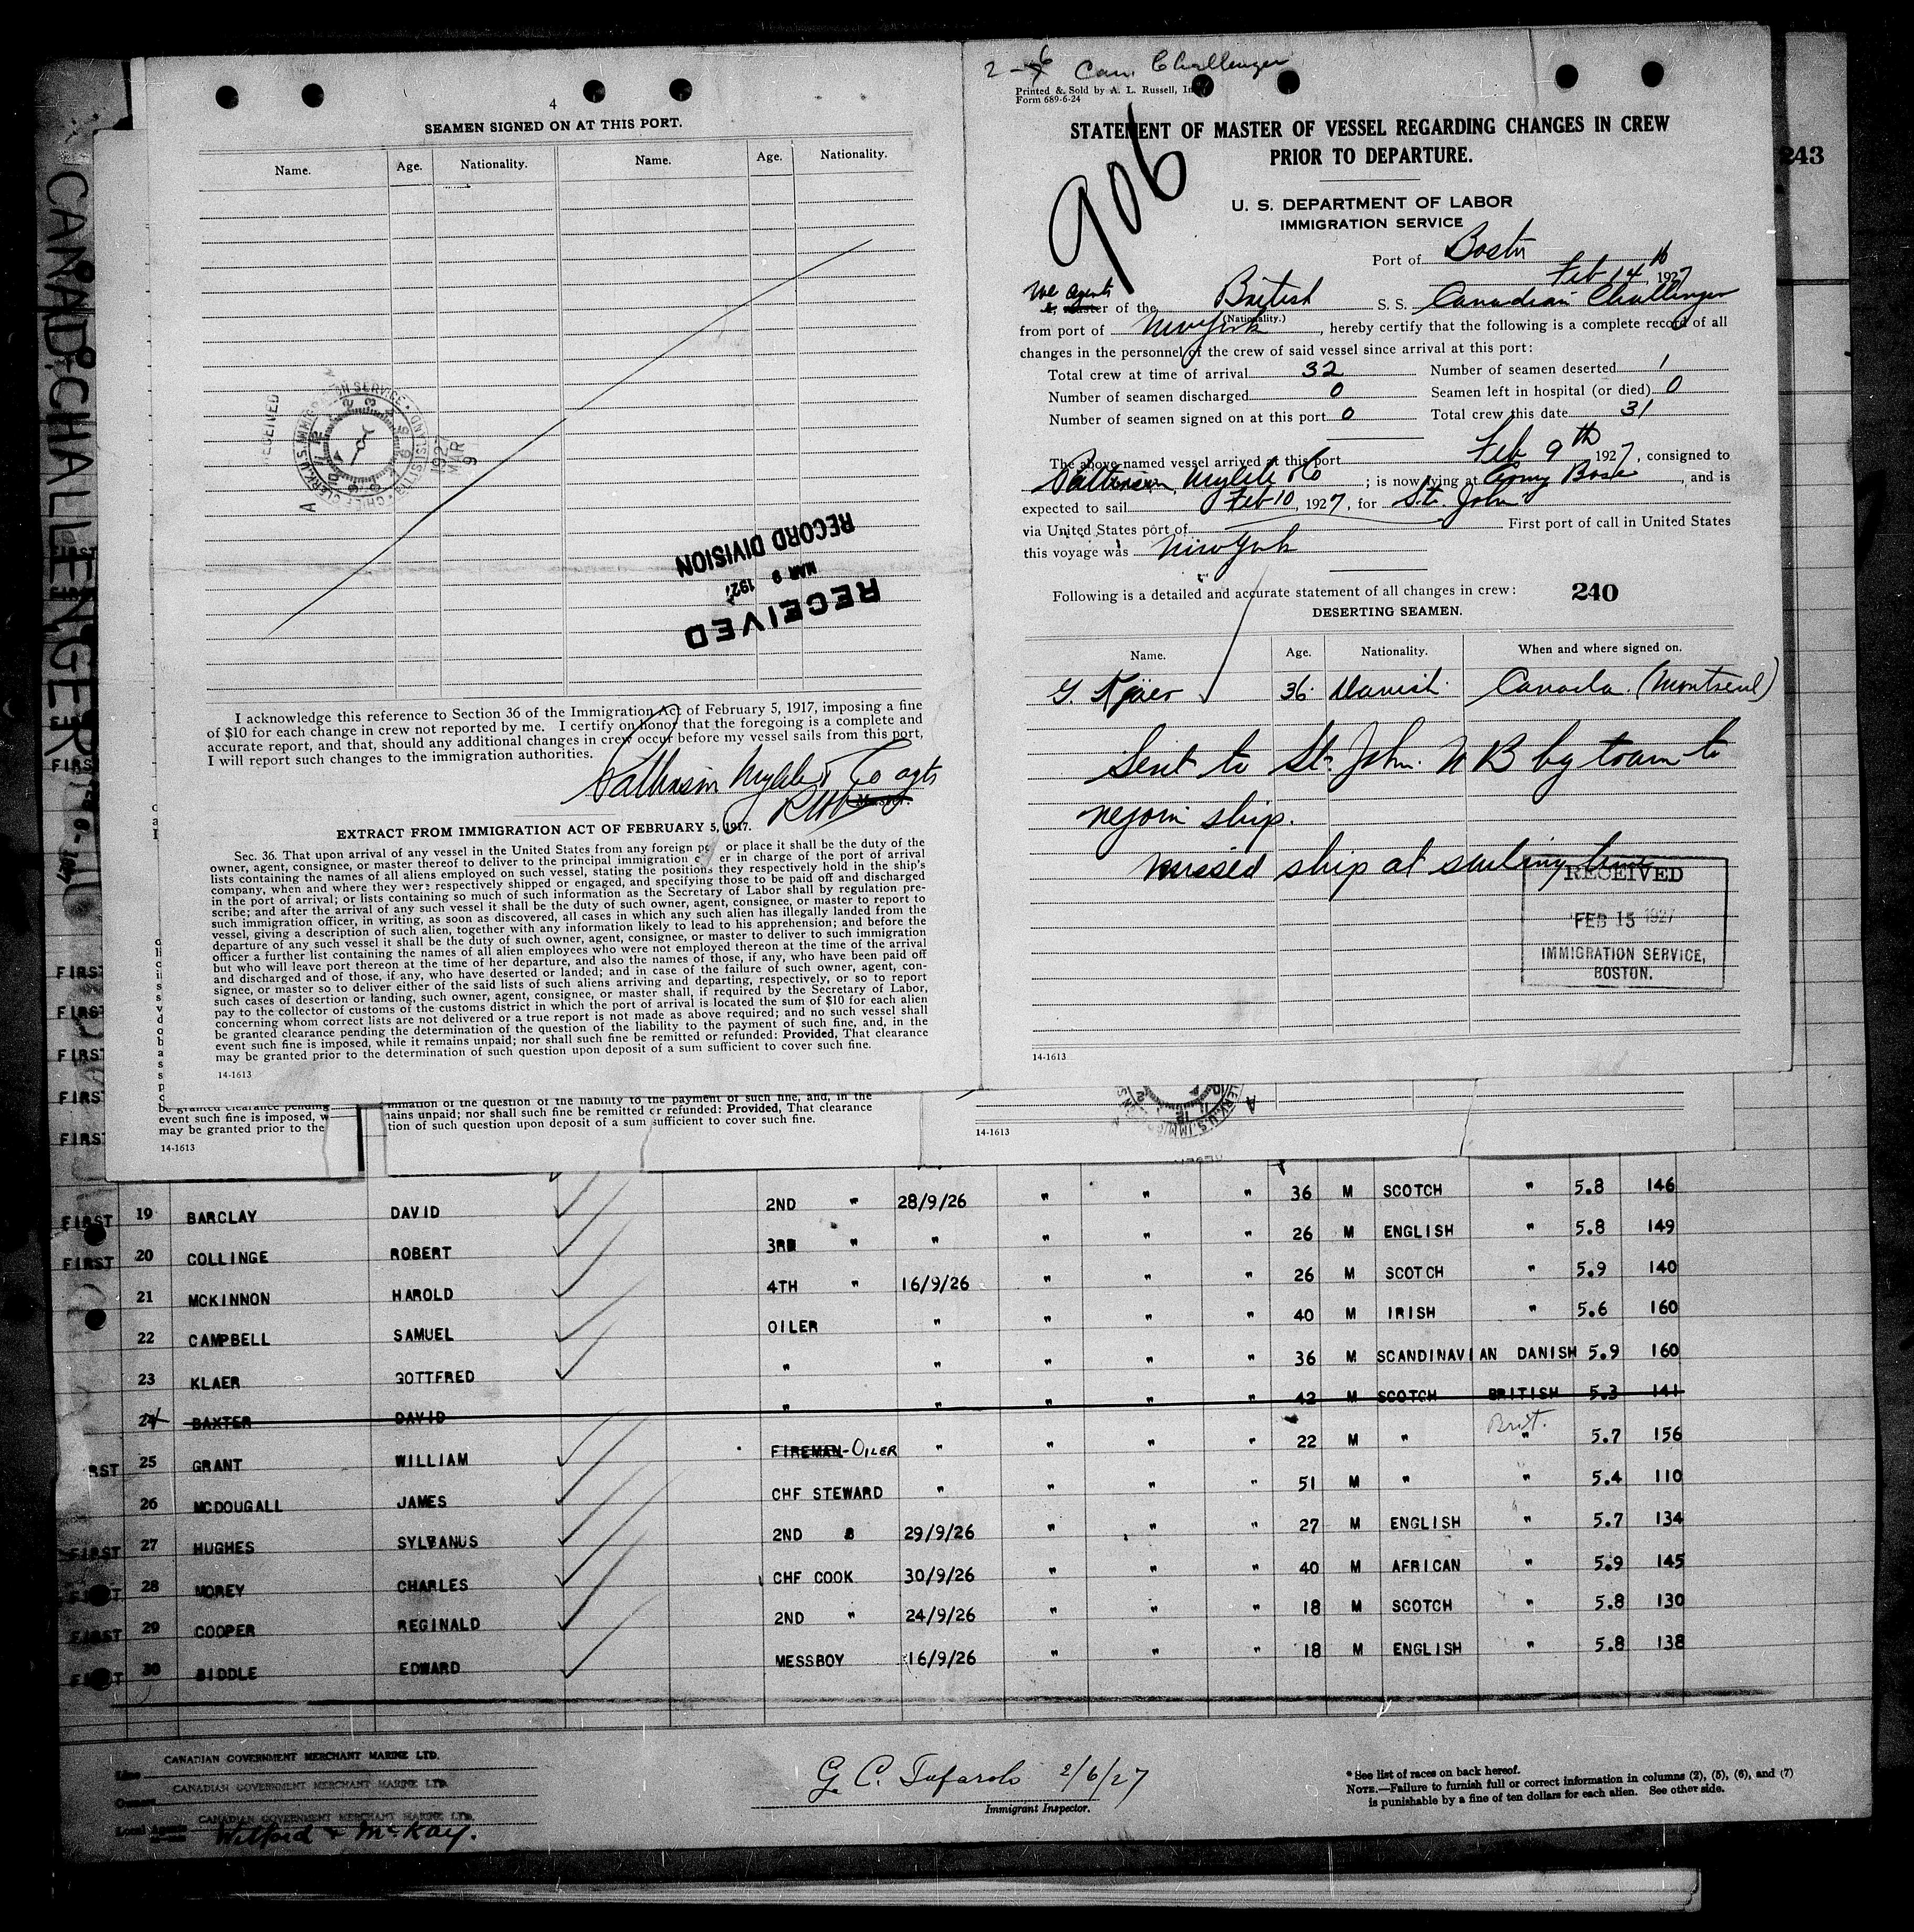 4
SEAMEN SIGNED ON AT THIS PORT.
Name. Age. Nationality. Name. Age. Nationality.
RECEIVED
MAR 9 1927
RECORD DIVISION
I acknowledge this reference to Section 36 of the Immigration Act of February 5, 1917, imposing a fine
of $10 for each change in crew not reported by me. I certify on honor that the foregoing is a complete and
accurate report, and that, should any additional changes in crew occur before my vessel sails from this port,
I will report such changes to the immigration authorities.
EXTRACT FROM IMMIGRATION ACT OF FEBRUARY 5, 1917.
Sec. 36. That upon arrival of any vessel in the United States from any foreign po or place it shall be the duty of the
owner, agent, consignee, or master thereof to deliver to the principal immigration er in charge of the port of arrival
lists containing the names of all aliens employed on such vessel, stating the positions they respectively hold in the ship's
company, when and where they were respectively shipped or engaged, and specifying those to be paid off and discharged
in the port of arrival; or lists containing so much of such information as the Secretary of Labor shall by regulation pre-
scribe; and after the arrival of any such vessel it shall be the duty of such owner, agent, consignee, or master to report to
such immigration officer, in writing, as soon as discovered, all cases in which any such alien has illegally landed from the
vessel, giving a description of such alien, together with any information likely to lead to his apprehension; and before the
departure of any such vessel it shall be the duty of such owner, agent, consignee, or master to deliver to such immigration
officer a further list containing the names of all alien employees who were not employed thereon at the time of the arrival
but who will leave port thereon at the time of her departure, and also the names of those, if any, who have been paid off
and discharged and of those, if any, who have deserted or landed; and in case of the failure of such owner, agent, con-
signee, or master so to deliver either of the said lists of such aliens arriving and departing, respectively, or so to report
such cases of desertion or landing, such owner, agent, consignee, or master shall, if required by the Secretary of Labor,
pay to the collector of customs of the customs district in which the port of arrival is located the sum of $10 for each alien
concerning whom correct lists are not delivered or a true report is not made as above required; and no such vessel shall
be granted clearance pending the determination of the question of the liability to the payment of such fine, and, in the
event such fine is imposed, while it remains unpaid; nor shall such fine be remitted or refunded: Provided, That clearance
may be granted prior to the determination of such question upon deposit of a sum sufficient to cover such fine.
14-1613
2-6 Can. Challenger
Printed & Sold by A. L. Russell, In
Form 689-6-24
906
STATEMENT OF MASTER OF VESSEL REGARDING CHANGES IN CREW
PRIOR TO DEPARTURE.
U. S. DEPARTMENT OF LABOR
IMMIGRATION SERVICE
Port of Boston
Feb 14th, 1927
We agents
I, Master of the British S. S. Canadian Challenger
(Nationality.)
from port of New York, hereby certify that the following is a complete record of all
changes in the personnel of the crew of said vessel since arrival at this port:
Total crew at time of arrival 32 Number of seamen deserted 1
Number of seamen discharged 0 Seamen left in hospital (or died) 0
Number of seamen signed on at this port 0 Total crew this date 31
The above-named vessel arrived at this port Feb 9th 1927, consigned to
Patterson, Wylde & Co; is now lying at Army Base, and is
expected to sail Feb 10, 1927, for St. John
via United States port of First port of call in United States
this voyage was New York
Following is a detailed and accurate statement of all changes in crew: 240
DESERTING SEAMEN.
Name. Age. Nationality. When and where signed on.
G. Kjaer 36. Danish. Canada (Montreal)
Sent to St. John. N B by train to
rejoin ship.
missed ship at sailing time
RECEIVED
FEB 15 1927
IMMIGRATION SERVICE,
BOSTON.
14-1613
243
CANAD. CHALLENGER
be granted clearance pending
event such fine is imposed, w
may be granted prior to the
14-1613
mination of the question of the liability to the payment of such fine, and, in the
ains unpaid; nor shall such fine be remitted or refunded: Provided, That clearance
tion of such question upon deposit of a sum sufficient to cover such fine.
14-1613
FIRST 19 BARCLAY DAVID 2ND " 28/9/26 " " " 36 M SCOTCH " 5.8 146
FIRST 20 COLLINGE ROBERT 3RD " " " " " 26 M ENGLISH " 5.8 149
21 MCKINNON HAROLD 4TH " 16/9/26 " " " 26 M SCOTCH " 5.9 140
22 CAMPBELL SAMUEL OILER " " " " 40 M IRISH " 5.6 160
23 KLAER GOTTFRED " " " " " 36 M SCANDINAVIAN DANISH 5.9 160
24 BAXTER DAVID " " " " " 42 M SCOTCH BRITISH 5.3 141
RST 25 GRANT WILLIAM FIREMAN-OILER " " " " 22 M " Brit. " 5.7 156
26 MCDOUGALL JAMES CHF STEWARD " " " " 51 M " " 5.4 110
FIRST 27 HUGHES SYLVANUS 2ND 29/9/26 " " " 27 M ENGLISH " 5.7 134
28 MOREY CHARLES CHF COOK 30/9/26 " " " 40 M AFRICAN " 5.9 145
FIRST 29 COOPER REGINALD 2ND " 24/9/26 " " " 18 M SCOTCH " 5.8 130
30 BIDDLE EDWARD MESSBOY 16/9/26 " " " 18 M ENGLISH " 5.8 138
Line CANADIAN GOVERNMENT MERCHANT MARINE LTD.
Owners CANADIAN GOVERNMENT MERCHANT MARINE LTD.
Local Agents CANADIAN GOVERNMENT MERCHANT MARINE LTD.
Wilford & McKay.
G. C. 2/6/27
Immigrant Inspector.
* See list of races on back hereof.
NOTE.—Failure to furnish full or correct information in columns (2), (5), (6), and (7)
is punishable by a fine of ten dollars for each alien. See other side.